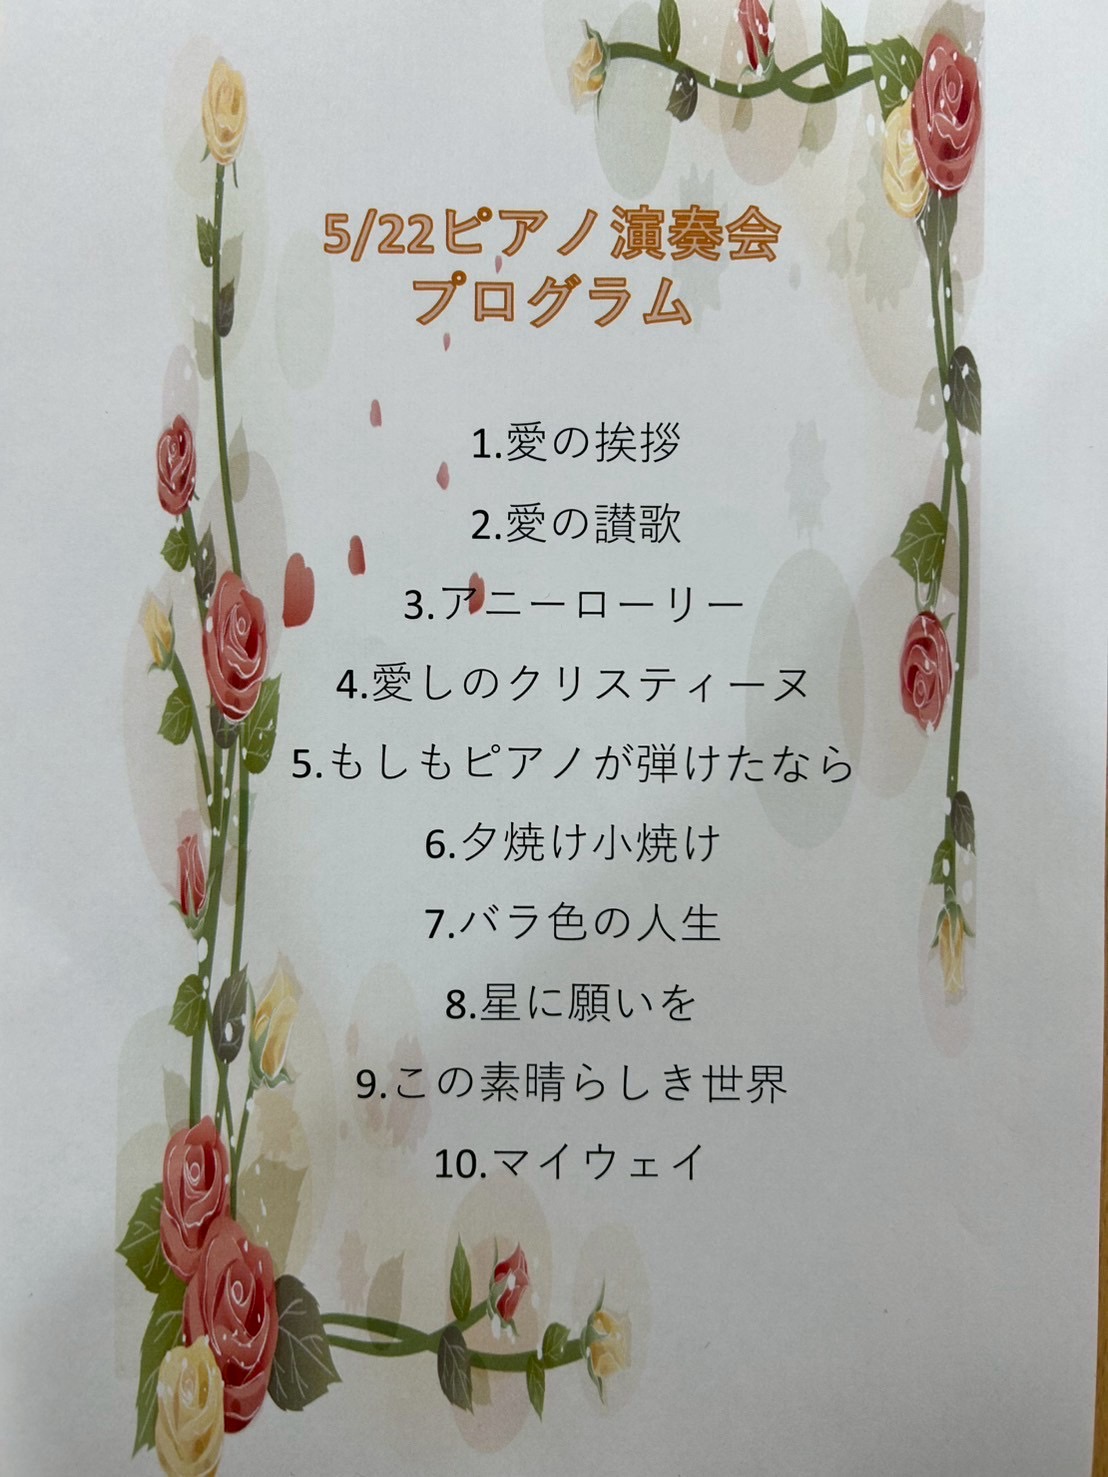 5/22ピアノ演奏会
プログラム
1.愛の挨拶
2.愛の讃歌
3.アニーローリー
4.愛しのクリスティーヌ
5.もしもピアノが弾けたなら
6.夕焼け小焼け
7.バラ色の人生
8.星に願いを
9.この素晴らしき世界
10.マイウェイ